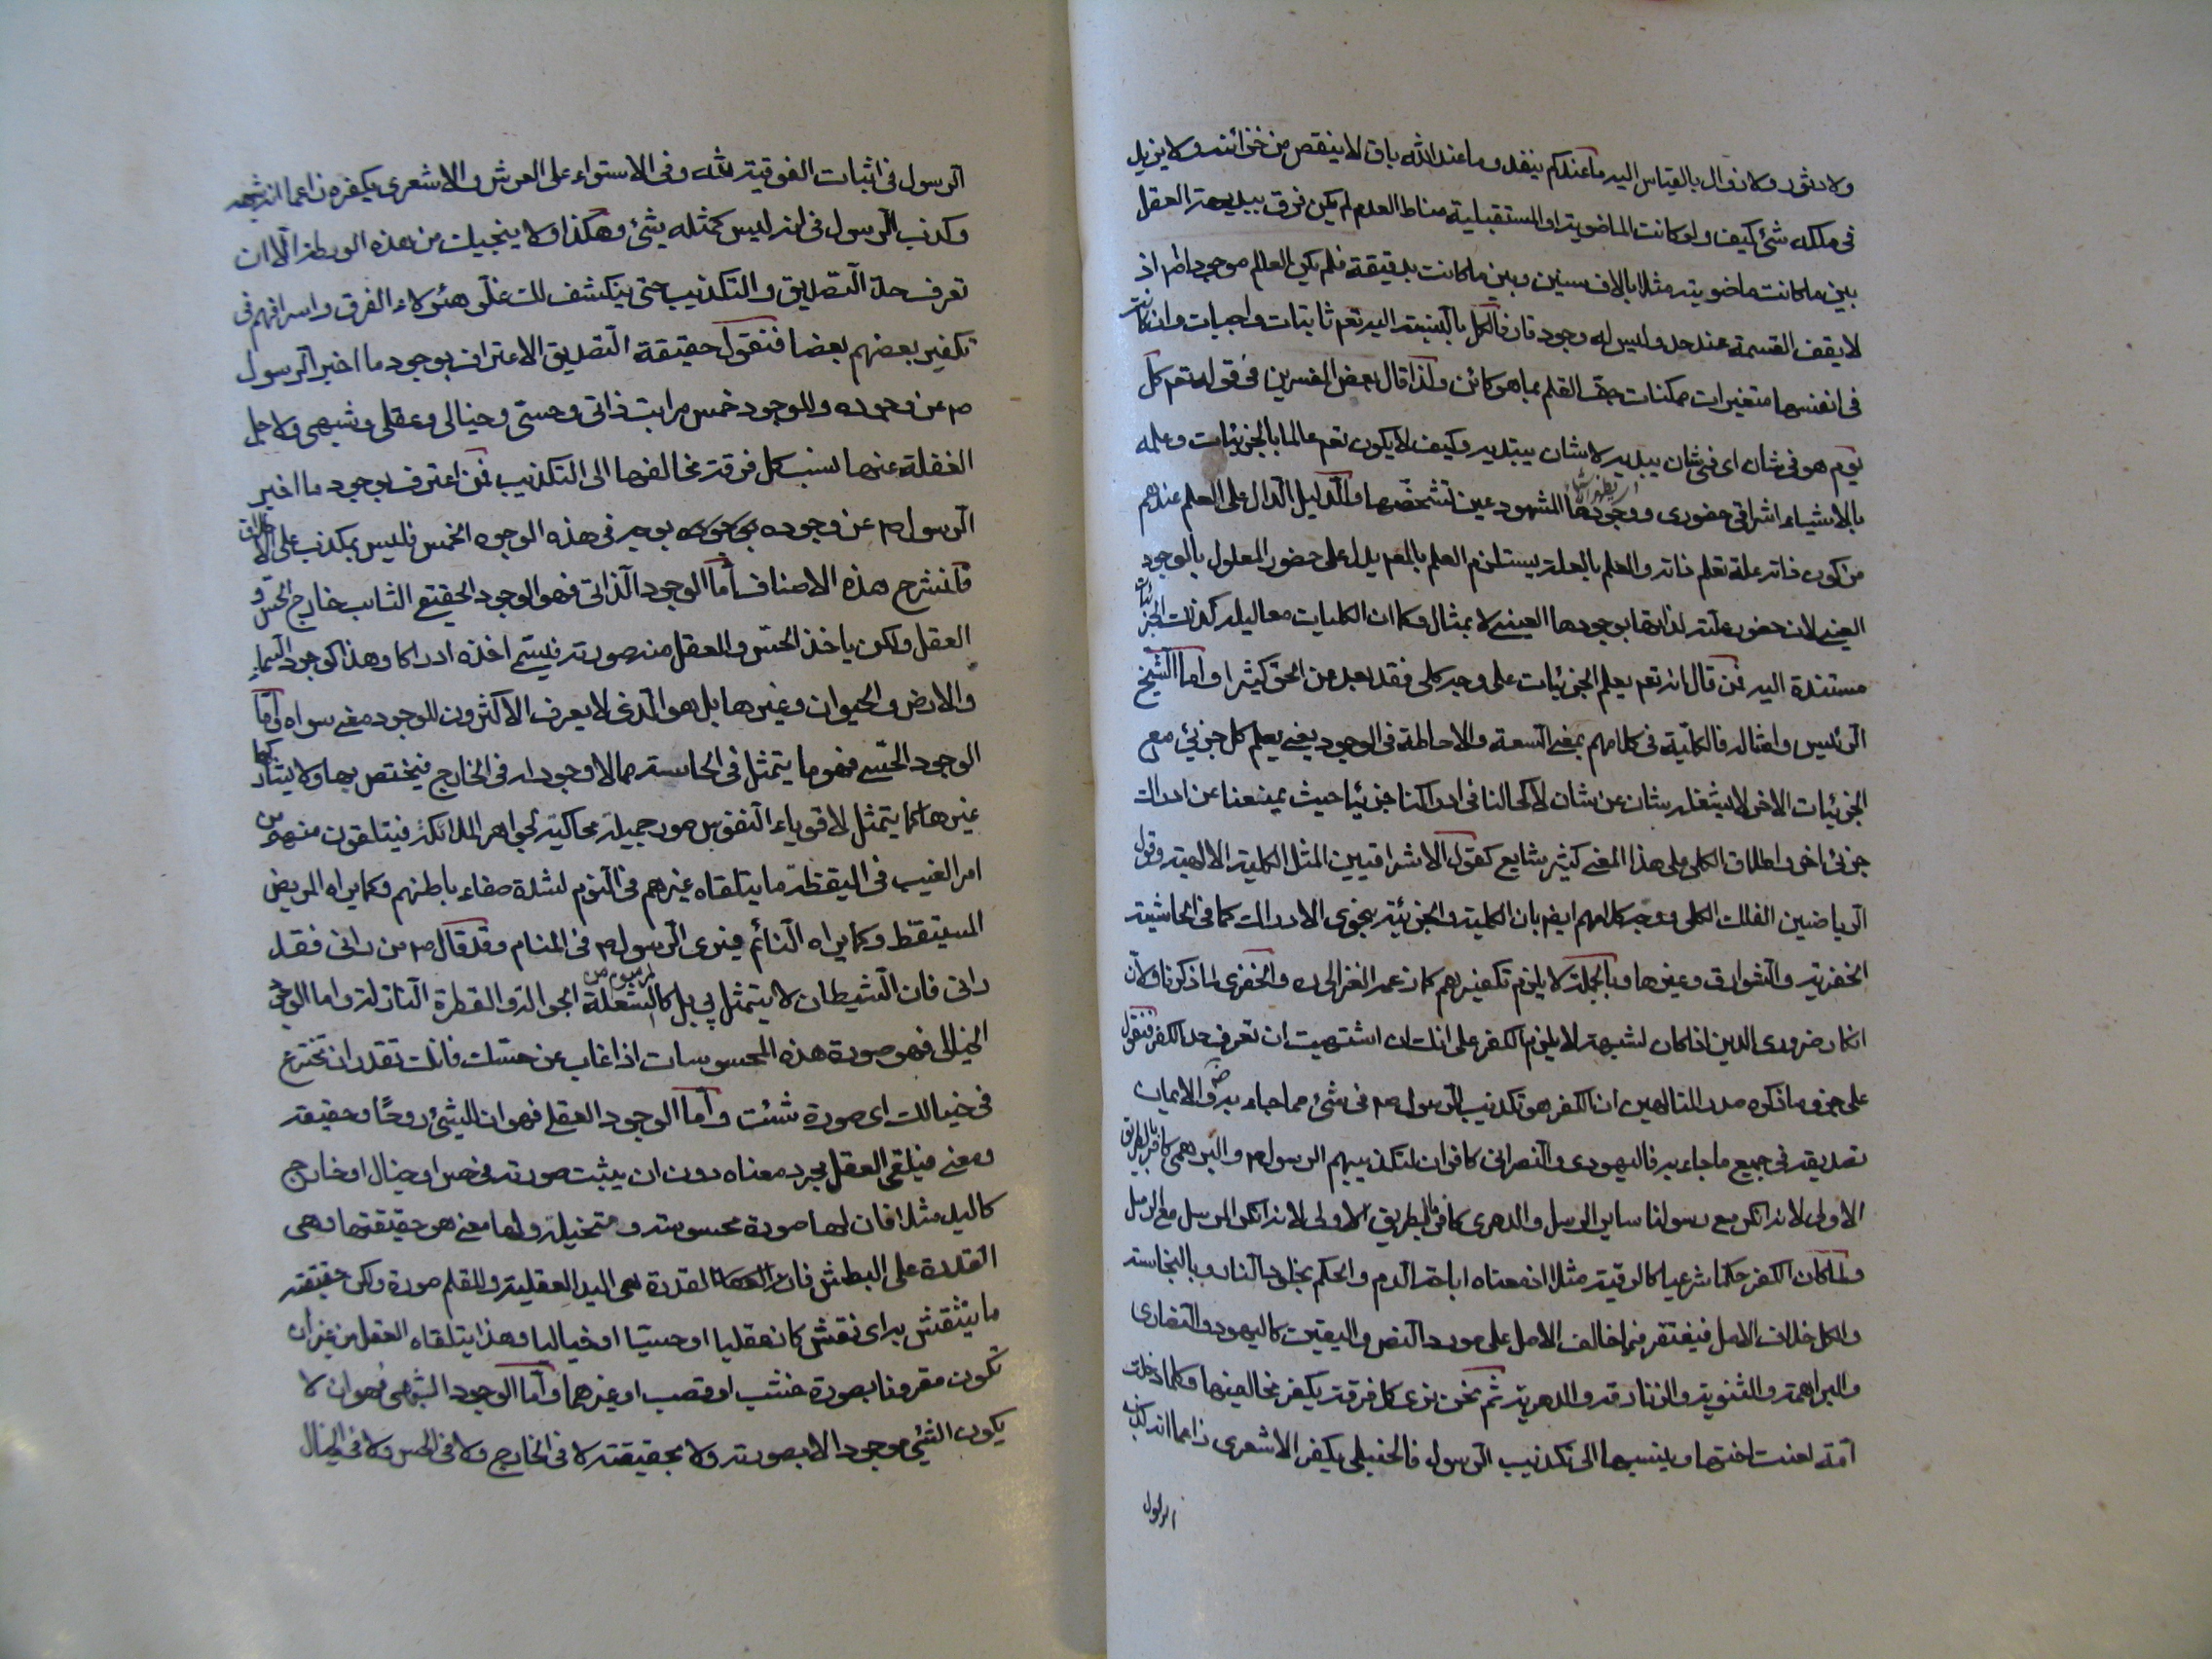 ولا دثور ولا زوال بالقياس اليه ما عندكم ينفد وما عند الله باق لا ينقص من خزائنه ولا يزيل
فى ملكه شئ كيف ولو كانت الماضوية او المستقبلية مناط العدم لم يكن فرق ببديهة العقل
بين ما كانت ماضويته مثلا بالاف سنين وبين ما كانت بدقيقة فلم يكن العالم موجودا اذ
لا يقف القسمة عند حد وليس له وجود قار فالكل بالنسبة اليه تعم ثابتات واجبات وان كانت
فى انفسها متغيرات ممكنات جف القلم بما هو كائن ولذا قال بعض المفسرين فى قوله تعم كل
يوم هو فى شان اى فى شان يبديه لا شان يبتديه وكيف لا يكون تعم عالما بالجزئيات وعلمه
بالاشياء اشراقى حضورى ووجودها المشهود عين تشخصها والدليل الدال على العلم عندهم
من كون ذاته علة تعلم ذاته والعلم بالعلة يستلزم العلم بالمعم يدل على حضور المعلول بالوجود
العينى لان حضور علته لذاتها بوجودها العينى لا بمثال وكما ان الكليات معاليله كذلك الجزئيات
مستندة اليه فمن قال انه تعم يعلم الجزئيات على وجه كلى فقد بعد من الحق كثيرا واما الشيخ
الرئيس وامثاله فالكلية فى كلامهم بمعنى السعة والاحاطة فى الوجود يعنى يعلم كل جزئى مع
الجزئيات الاخر لا يشغله شان عن شان لا كحالنا فى ادراكنا جزئيا حيث يمنعنا عن ادراك
جزئى اخر واطلاق الكلى على هذا المعنى كثير شايع كقول الاشراقيين المثل الكلية الالهية وقول
الرياضيين الفلك الكلى ووجه كلامهم ايض بان الكلية والجزئية بنحوى الادراك كما فى الحاشية
الخفرية والشوارق وغيرها وبالجملة لا يلزم تكفيرهم كما زعمه الغزالى ره والخفرى لما ذكرنا ولان
انكار ضرورى الدين اذا كان لشبهة لا يلزم الكفر على انك ان اشتهيت ان تعرف حد الكفر فنقول
على نحو ما ذكره صدر المتالهين ان الكفر هو تكذيب الرسول ص فى شئ مما جاء به والايمان
تصديقه فى جميع ما جاء به فاليهودى والنصرانى كافران لتكذيبهم الرسول ص والبرهمى كافر بالطريق
الاولى لانه انكر مع رسولنا ساير الرسل والدهرى كافر بالطريق الاولى لانه انكر المرسل مع الرسل
ولما كان الكفر حكما شرعيا كالرقية مثلا اذ معناه اباحة الدم والحكم بخلود النار وبالنجاسة
والكل خلاف الاصل فيفتقر فيما خالف الاصل على مورد النص واليقين كاليهود والنصارى
والبراهمة والثنوية والزنادقة والدهرية ثم نحن نرى كل فرقة يكفر مخالفيها وكلما دخلت
امة لعنت اختها وينسبها الى تكذيب الرسول فالحنبلى يكفر الاشعرى زاعما انه كذب
الرسول
الرسول فى اثبات الفوقية لله وفى الاستواء على العرش والاشعرى يكفره زاعما انه شبهه
وكذب الرسول فى انه ليس كمثله شئ وهكذا ولا ينجيك من هذه الورطة الا ان
تعرف حد التصديق والتكذيب حتى ينكشف لك غلو هئولاء الفرق واسرافهم فى
تكفير بعضهم بعضا فنقول حقيقة التصديق الاعتراف بوجود ما اخبر الرسول
ص عن وجوده وللوجود خمس مراتب ذاتى وحسى وخيالى وعقلى وشبهى ولاجل
الغفلة عنها نسب كل فرقة مخالفها الى التكذيب فمن اعترف بوجود ما اخبر
الرسول ص عن وجوده بوجه فى هذه الوجوه الخمس فليس بمكذب على الاطلاق
فلنشرح هذه الاصناف اما الوجود الذاتى فهو الوجود الحقيقى الثابت خارج الحس و
العقل ولكن ياخذ الحس والعقل منه صورته فيسمى اخذه ادراكا وهذا كوجود السماء
والارض والحيوان وغيرها بل هو الذى لا يعرف الاكثرون للوجود معنى سواه واما
الوجود الحسى فهو ما يتمثل فى الحاسة مما لا وجود له فى الخارج فيختص بها ولا يشاركها
غيرها كما يتمثل لاقوياء النفوس صور جميلة محاكية لجواهر الملائكة فيتلقون منهم من
امر الغيب فى اليقظة ما يتلقاه غيرهم فى النوم لشدة صفاء باطنهم وكما يراه المريض
المستيقظ وكما يراه النائم فيرى الرسول ص فى المنام وقد قال ص من رانى فقد
رانى فان الشيطان لا يتمثل بى بل كالشعلة الجوالة والقطرة النازلة واما الوجود
الخيالى فهو صورة هذه المحسوسات اذا غاب عن حسك فانك تقدر ان تخترع
فى خيالك اى صورة شئت واما الوجود العقلى فهو ان للشئ روحا وحقيقة
ومعنى فيلقى العقل مجرد معناه دون ان يثبت صورته فى حس او خيال او خارج
كاليد مثلا فان لها صورة محسوسة ومتخيلة ولها معنى هو حقيقتها وهى
القدرة على البطش فان القدرة هى اليد العقلية وللقلم صورة ولكن حقيقته
ما ينتقش به اى نقش كان عقليا او حسيا او خياليا وهذا يتلقاه العقل من غير ان
تكون مقرونا بصورة خشب او قصب او غيرهما واما الوجود الشبهى فهو ان لا
يكون الشئ موجودا لا بصورته ولا بحقيقته لا فى الخارج ولا فى الحس ولا فى الخيال